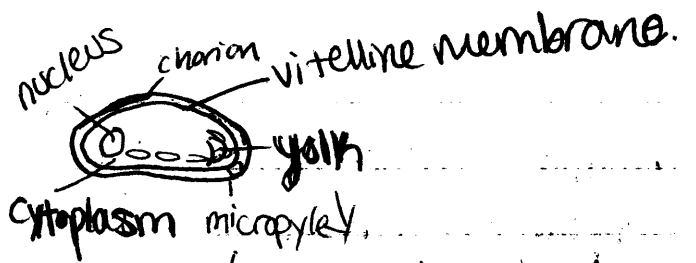 nucleus
chorion
vitelline membrane.
yolk
cytoplasm
micropyley.